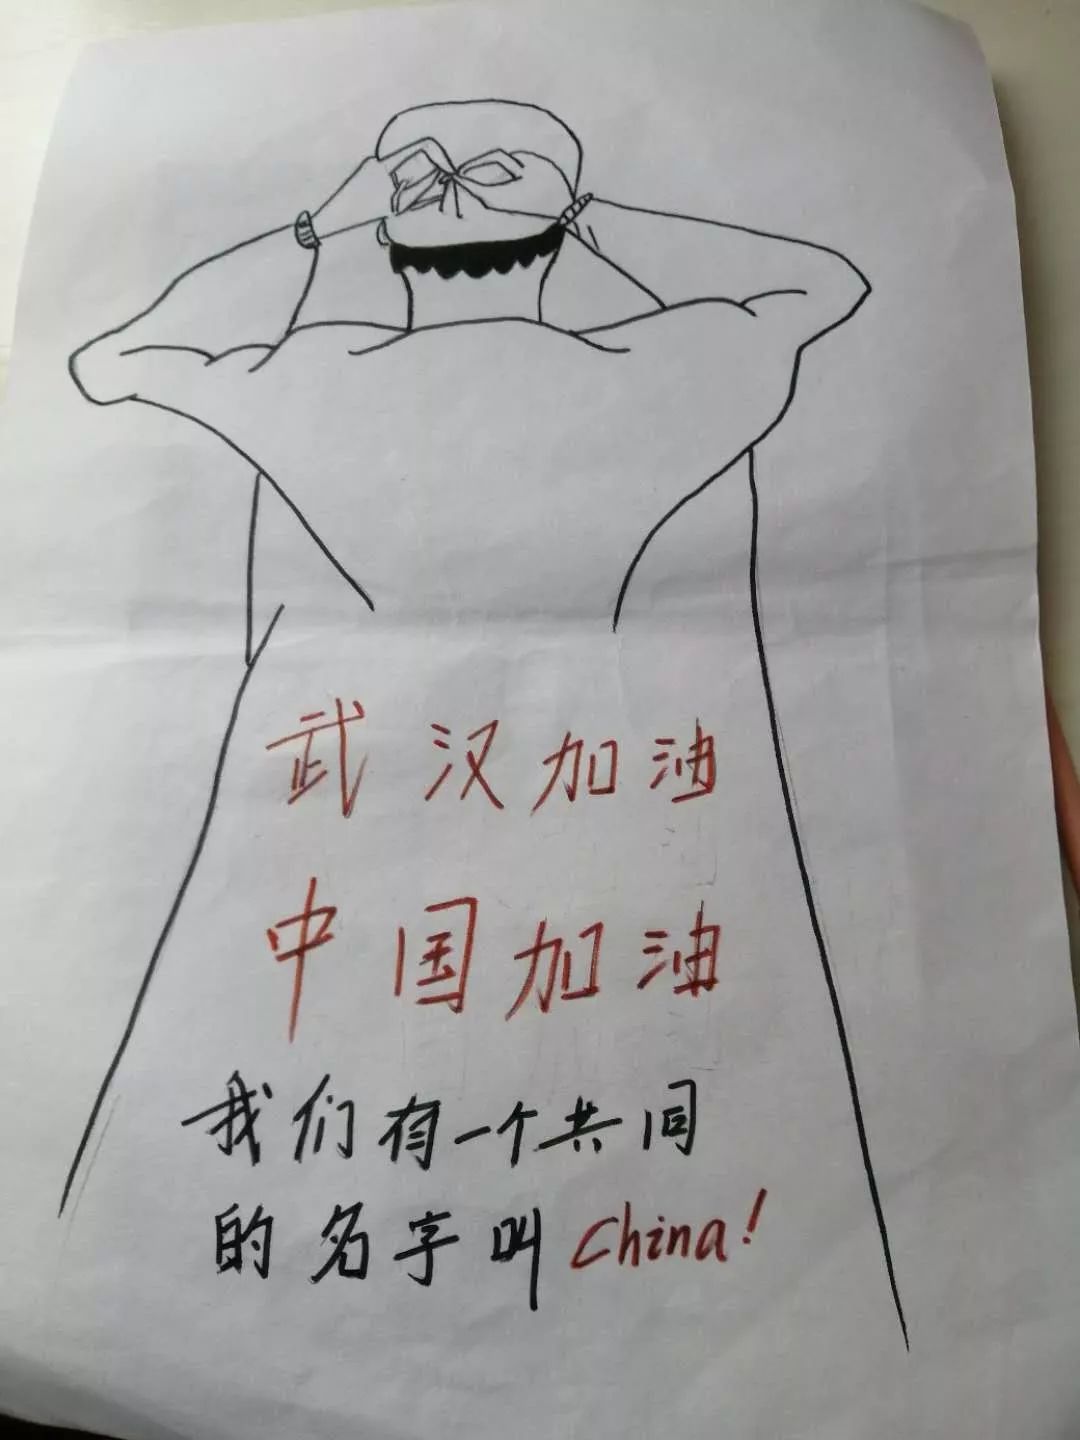 武汉加油
中国加油
我们有一个共同
的名字叫China!